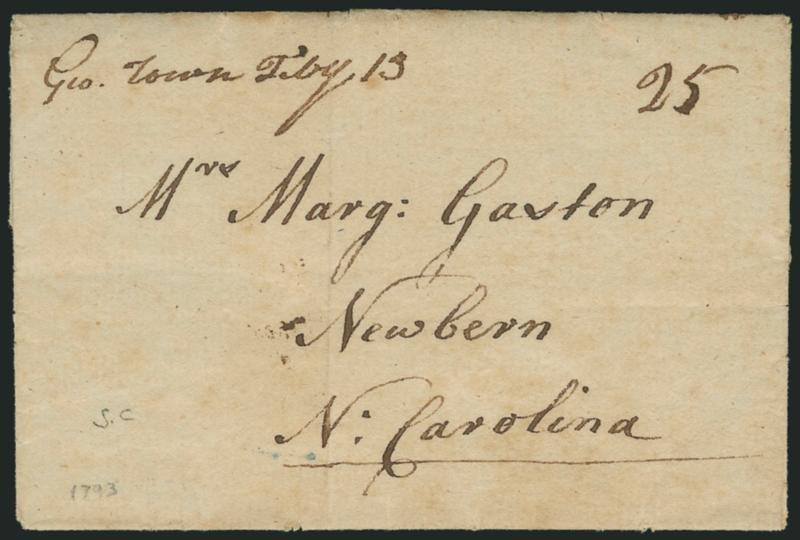 Geo. Town Feby 13
25
Mrs Marg: Gaston
Newbern
N: Carolina
S.C
1793